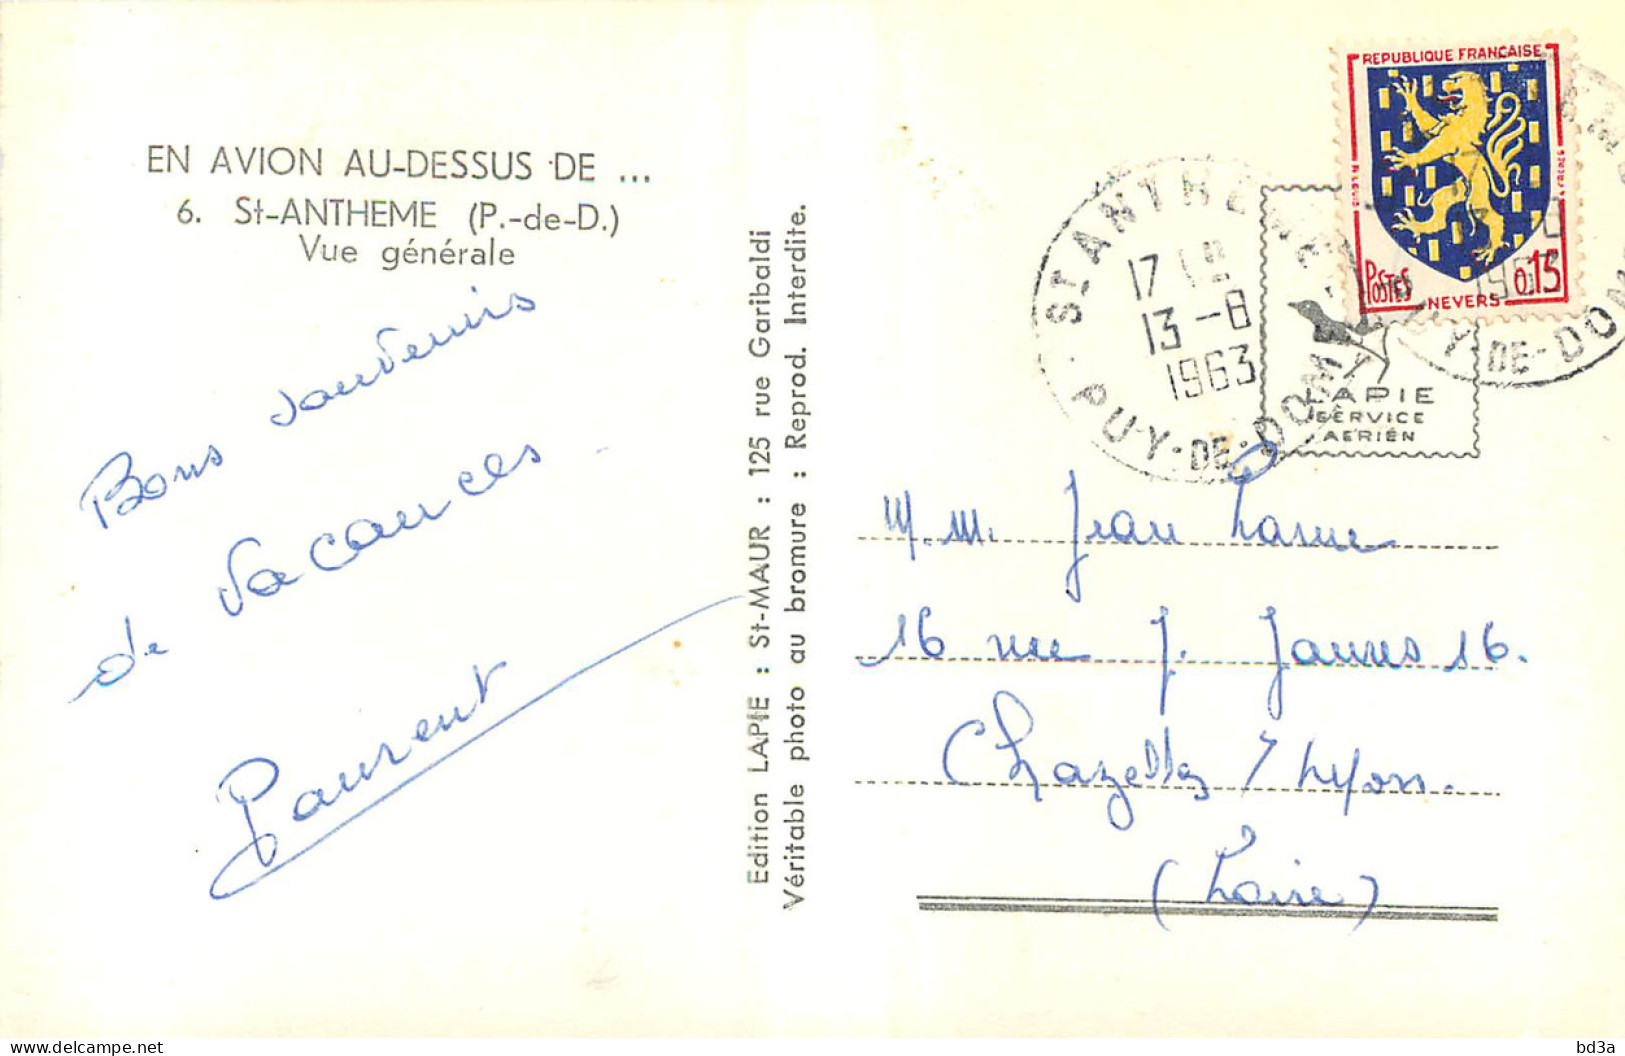 EN AVION AU-DESSUS DE ...
6. St-ANTHEME (P.-de-D.)
Vue générale
Bons souvenirs
de vacances
Laurent
Edition LAPIE : St-MAUR : 125 rue Garibaldi
Véritable photo au bromure : Reprod. Interdite.
REPUBLIQUE FRANÇAISE
POSTES
0,15
NEVERS
St ANTHEME
17
13-8
1963
PUY-DE-DOME
1963
PUY-DE-DOME
LAPIE
SERVICE
AERIEN
M. M. Jean
16 rue J. Jaures 16.
Chazelles / Lyon.
(Loire)
delcampe.net
bd3a